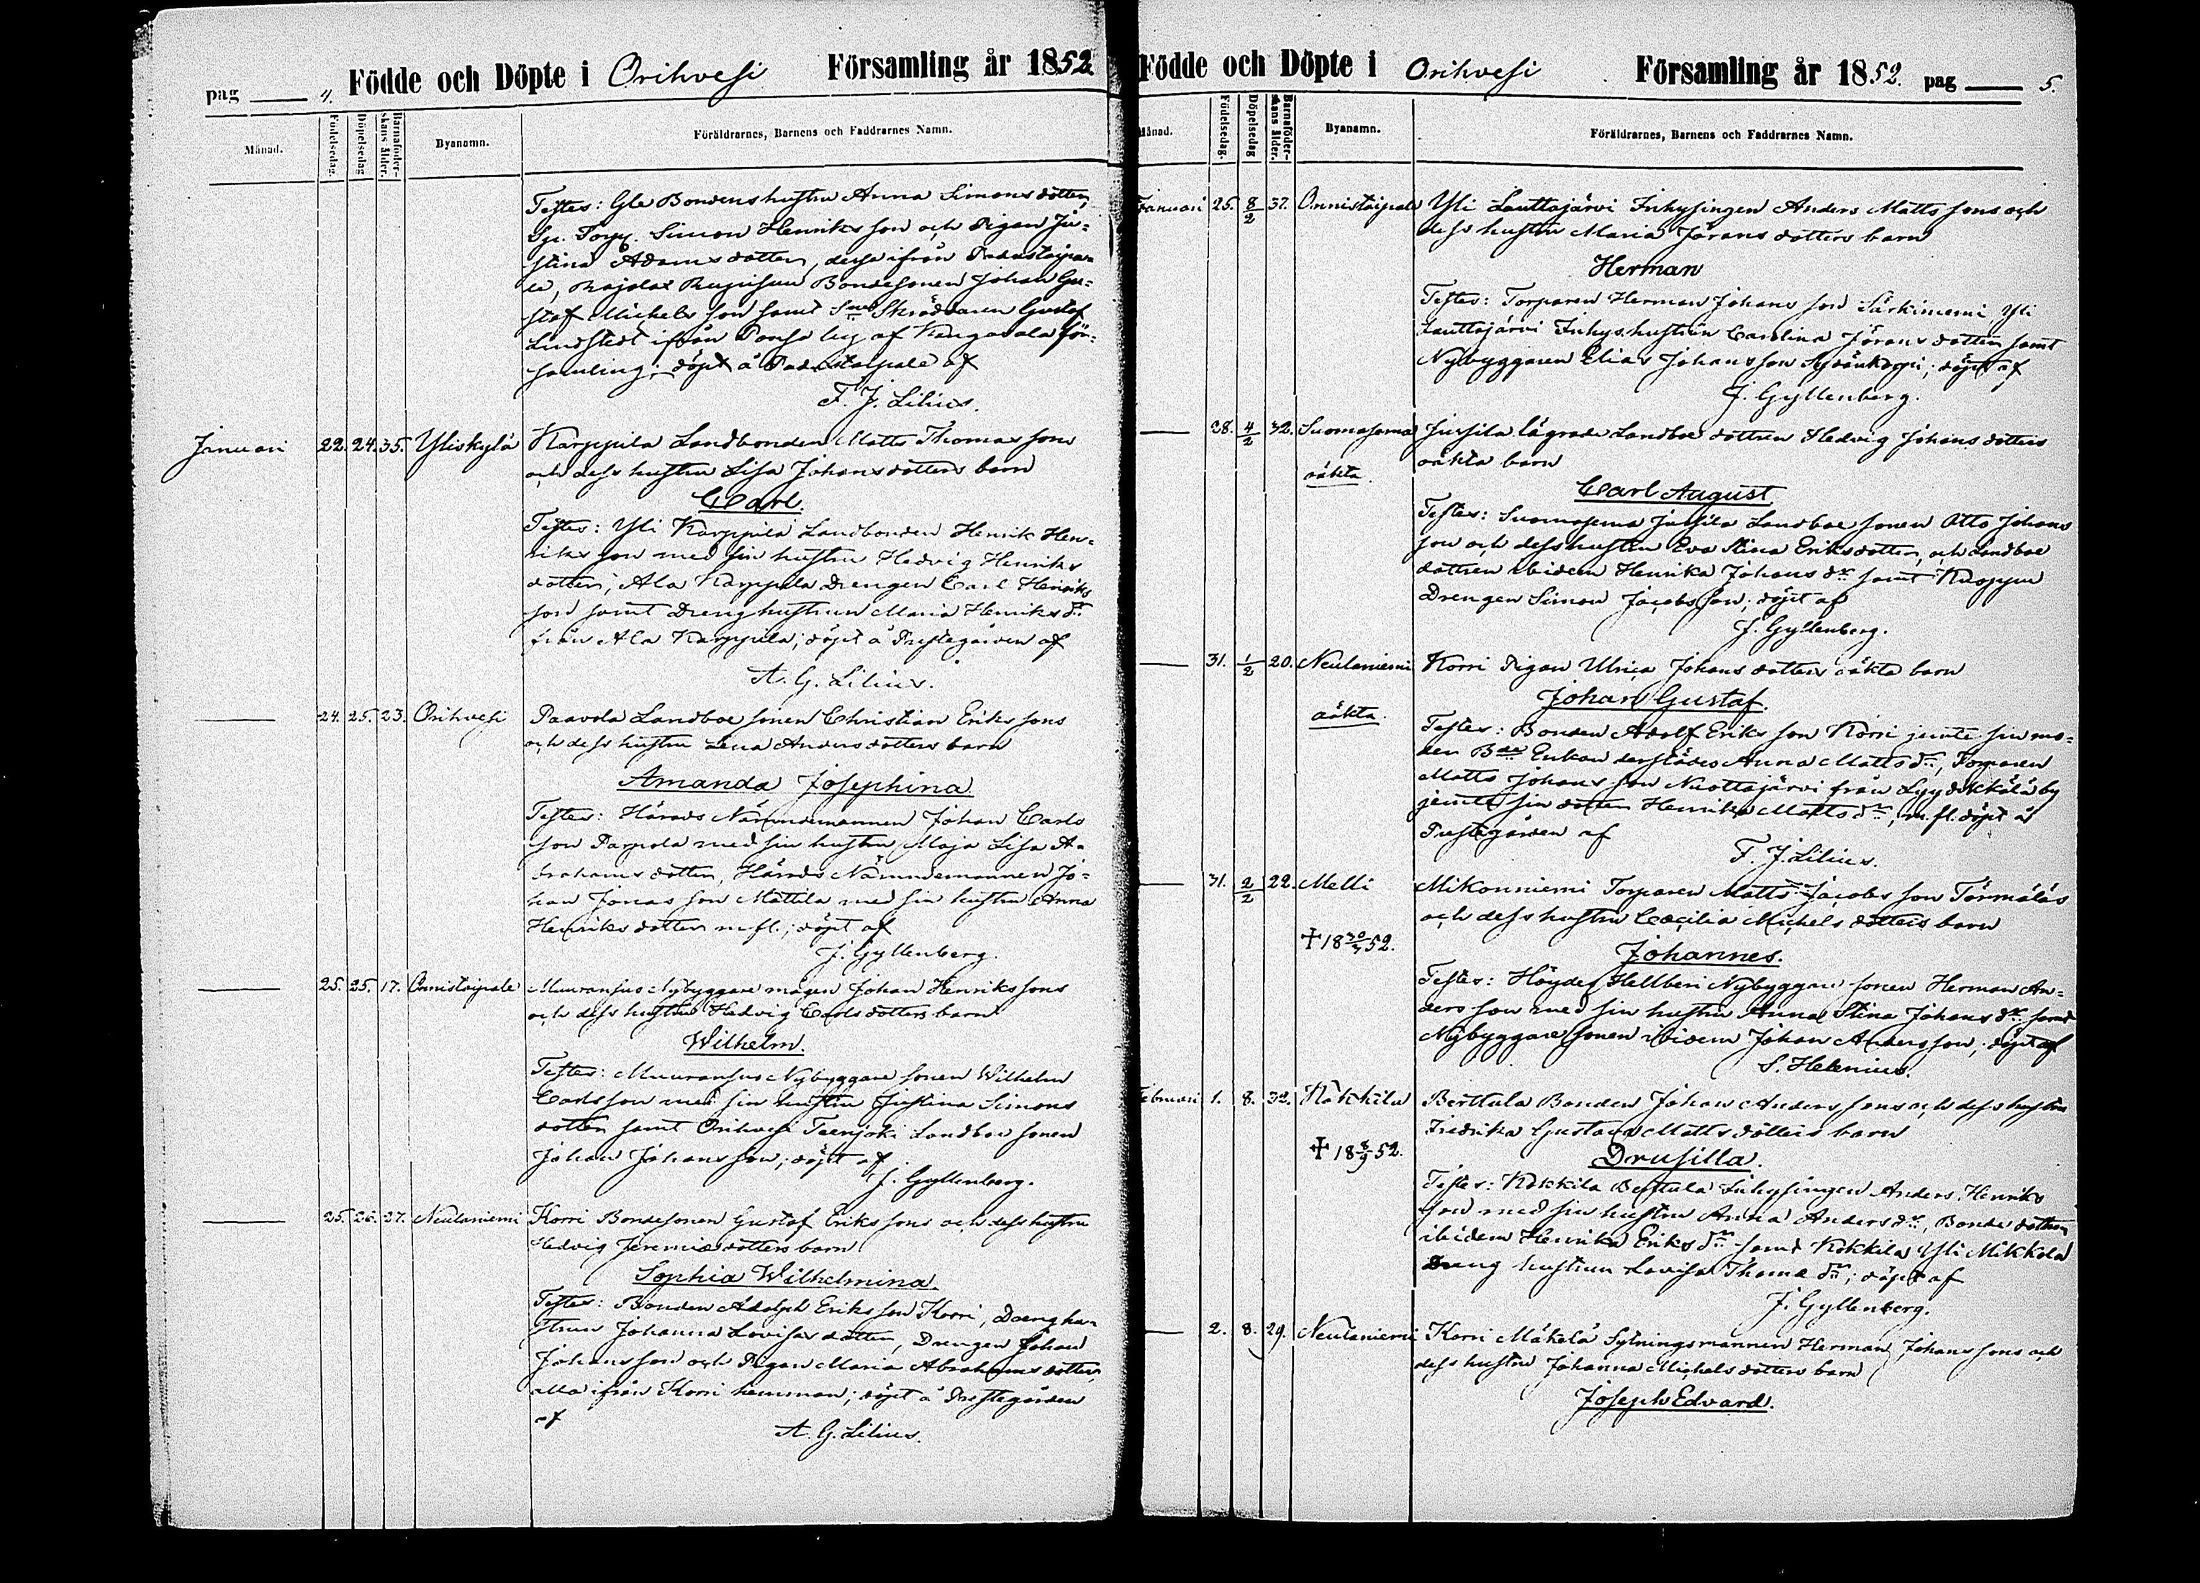 pag 4. Födde och Döpte i Orihvesi Församling år 1852.
Månad. Födelsedag. Döpelsedag Barnaföderskans ålder. Byanamn. Föräldrarnes, Barnens och Faddrarnes Namn.
Testes: Gla Bondens hustru Anna Simonsdotter,
Torp. Simon Henriksson och Pigan Ju-
stina Adamsdotter, desse ifrån
Bondesonen Johan Gu-
staf Michelsson samt Skräddaren Gustaf
Lindstedt ifrån by af Kangasala för-
samling; döpt å af
F. J. Lilius.
Januari 22. 24. 35. Yliskylä Karppila Landbonden Matts Thomassons
och dess hustru Lisa Johansdotters barn
Carl.
Testes: Yli Karppila Landbonden Henrik Hen-
riksson med sin hustru Hedvig Henriks
dotter, Ala Karppila Drengen Carl Henriks
son samt Dreng hustrun Maria Henriks dr
från Ala Karppila; döpt å Prestegården af
A. G. Lilius.
24. 25. 23. Orihvesi Paavola Landboe sonen Christian Erikssons
och dess hustru Lena Andersdotters barn
Amanda Josephina.
Testes: Härads Nämndemannen Johan Carls
son Parpola med sin hustru Maja Lisa A-
brahamsdotter, Härads Nämndemannen Jo-
han Jonasson Mattila med sin hustru Anna
Henriksdotter m.fl.; döpt af
J. Gyllenberg.
25. 25. 17. Onnistaipale Muuransuo Nybyggare mågen Johan Henrikssons
och dess hustru Hedvig Carlsdotters barn
Wilhelm.
Testes: Muuransuo Nybyggare sonen Wilhelm
Carlsson med sin hustru Justina Simons
dotter samt Orihvesi Teerijoki Landboe sonen
Johan Johansson; döpt af
J. Gyllenberg.
25. 26. 27. Neulaniemi Korri Bondesonen Gustaf Erikssons och dess hustru
Hedvig Jeremiædotters barn
Sophia Wilhelmina.
Testes: Bonden Adolph Eriksson Korri, Dreng hu-
strun Johanna Lovisa dotter, Drengen Johan
Johansson och Pigan Maria Abrahamsdotter,
alla ifrån Korri hemman; döpt å Prestegården
af
A. G. Lilius.
Födde och Döpte i Orihvesi Församling år 1852. pag 5.
Månad. Födelsedag. Döpelsedag Barnaföderskans ålder. Byanamn. Föräldrarnes, Barnens och Faddrarnes Namn.
Januari 25. 8/2 37. Onnistaipale Yli Lauttajärvi Inhysingen Anders Mattssons och
dess hustru Maria Göransdotters barn
Herman
Testes: Torparen Herman Johansson Särkiniemi, Yli
Lauttajärvi Inhys. hustrun Carolina Göransdotter samt
Nybyggaren Elias Johansson; döpt af
J. Gyllenberg.
28. 4/2 32. Suomasema Jussila lägrade Landboe dottren Hedvig Johansdotters
oäkta oäkta barn
Carl August
Testes: Suomasema Jussila Landboe sonen Otto Johans
son och dess hustru Eva Stina Eriksdotter, och Landboe
dottren ibidem Henrika Johans dr samt
Drengen Simon Jacobsson; döpt af
J. Gyllenberg.
31. 1/2 20. Neulaniemi Korri Pigan Ulrica Johansdotters oäkta barn
Johan Gustaf.
oäkta. Testes: Bonden Adolf Eriksson Korri jemte sin mo-
der Bde Enkan derstädes Anna Matts dr, Torparen
Matts Johansson Nuottajärvi från by
jemte sin dotter Henrika Matts dr, m.fl. döpt å
Prestegården af
F. J. Lilius.
31. 2/2 22. Melli Mikonniemi Torparen Matts Jacobsson Törmäläs
och dess hustru Cæcilia Michelsdotters barn
✝ 18 30/4 52. Johannes.
Testes: Nybyggare sonen Herman An-
dersson med sin hustru Anna Stina Johans dr samt
Nybyggare sonen ibidem Johan Andersson; döpt af
S. Helenius.
Februari 1. 8. 32. Kokkila Berttula Bonden Johan Anderssons och dess hustru
Fredrika Gustava Mattsdotters barn
✝ 18 8/9 52. Drusilla.
Testes: Kokkila Berttula Inhysingen Anders Henriks
son med sin hustru Anna Anders dr, Bonde dottren
ibidem Henrika Eriks dr samt Kokkila Yli Mikkola
Dreng hustrun Lovisa Thomæ dr; döpt af
J. Gyllenberg.
2. 8. 29. Neulaniemi Korri Mäkelä Sytningsmannen Herman Johanssons och
dess hustru Johanna Michelsdotters barn
Joseph Edvard.